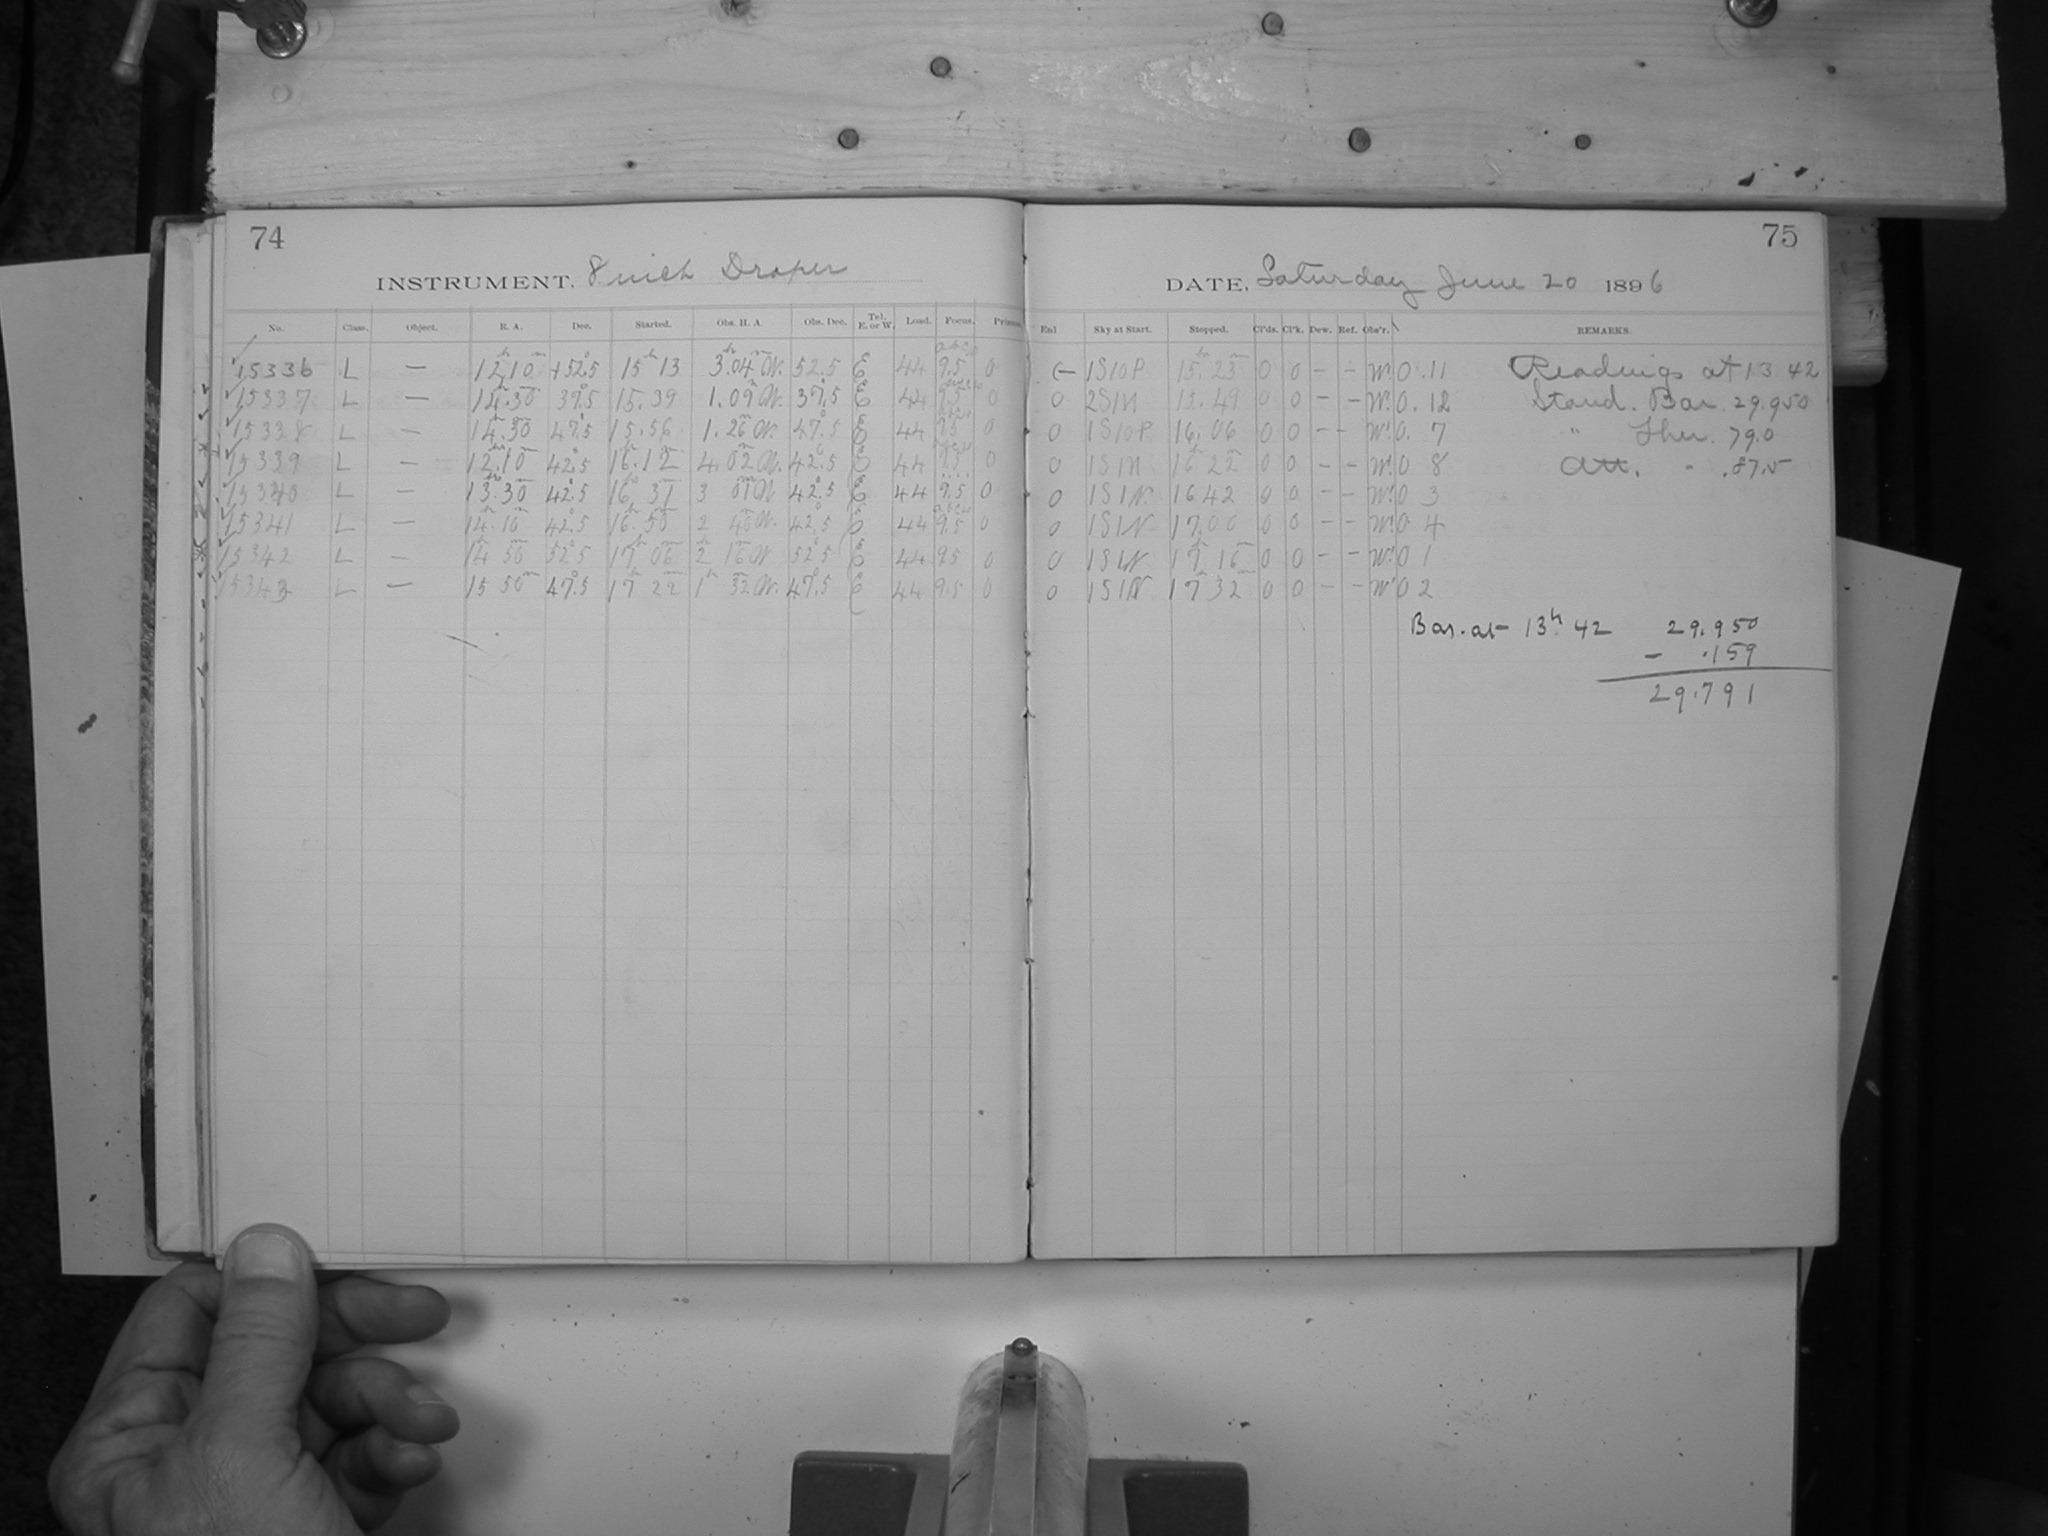 74
INSTRUMENT, 8 inch Draper
No. Class. Object. R. A. Dec. Started. Obs. H. A. Obs. Dec. Tel. E. or W. Load. Focus. Prisms.
15336 L — 12h 10m +52°.5 15h 13 3h.04m W. 52.5 E 44 9.5 0
15337 L — 14.30 37.5 15.39 1.09 W. 37.5 E 44 9.5 0
15338 L — 14.30 47.5 15.56 1.26 W. 47.5 E 44 9.5 0
15339 L — 12.10 42.5 16.12 4.02 W. 42.5 E 44 9.5 0
15340 L — 13.30 42.5 16 31 3 01 W 42.5 E 44 9.5 0
15341 L — 14.10 42.5 16.50 2 40 W. 42.5 E 44 9.5 0
15342 L — 14 50 52.5 17 06 2 16 W 52.5 E 44 9.5 0
15343 L — 15 50 47.5 17 22 1 32 W. 47.5 E 44 9.5 0
75
DATE, Saturday June 20 1896
Enl Sky at Start. Stopped. Cl'ds. Cl'k. Dew. Ref. Obs'r. REMARKS.
1S10P 15h.23m 0 0 – – W. 0.11 Readings at 13 42
0 2S1N 15.49 0 0 – – W. 0.12 Stand. Bar. 29.950
0 1S10P. 16.06 0 0 – – W. 0.7 " Ther. 79.0
0 1S1N 16 22 0 0 – – W. 0 8 Att. " .87.5
0 1S1N. 16 42 0 0 – – W. 0 3
0 1S1N. 17.00 0 0 – – W. 0 4
0 1S1N. 17 16 0 0 – – W. 0 1
0 1S1N 17 32 0 0 – – W. 0 2
Bar. at 13h 42 29.950
– .159
29.791